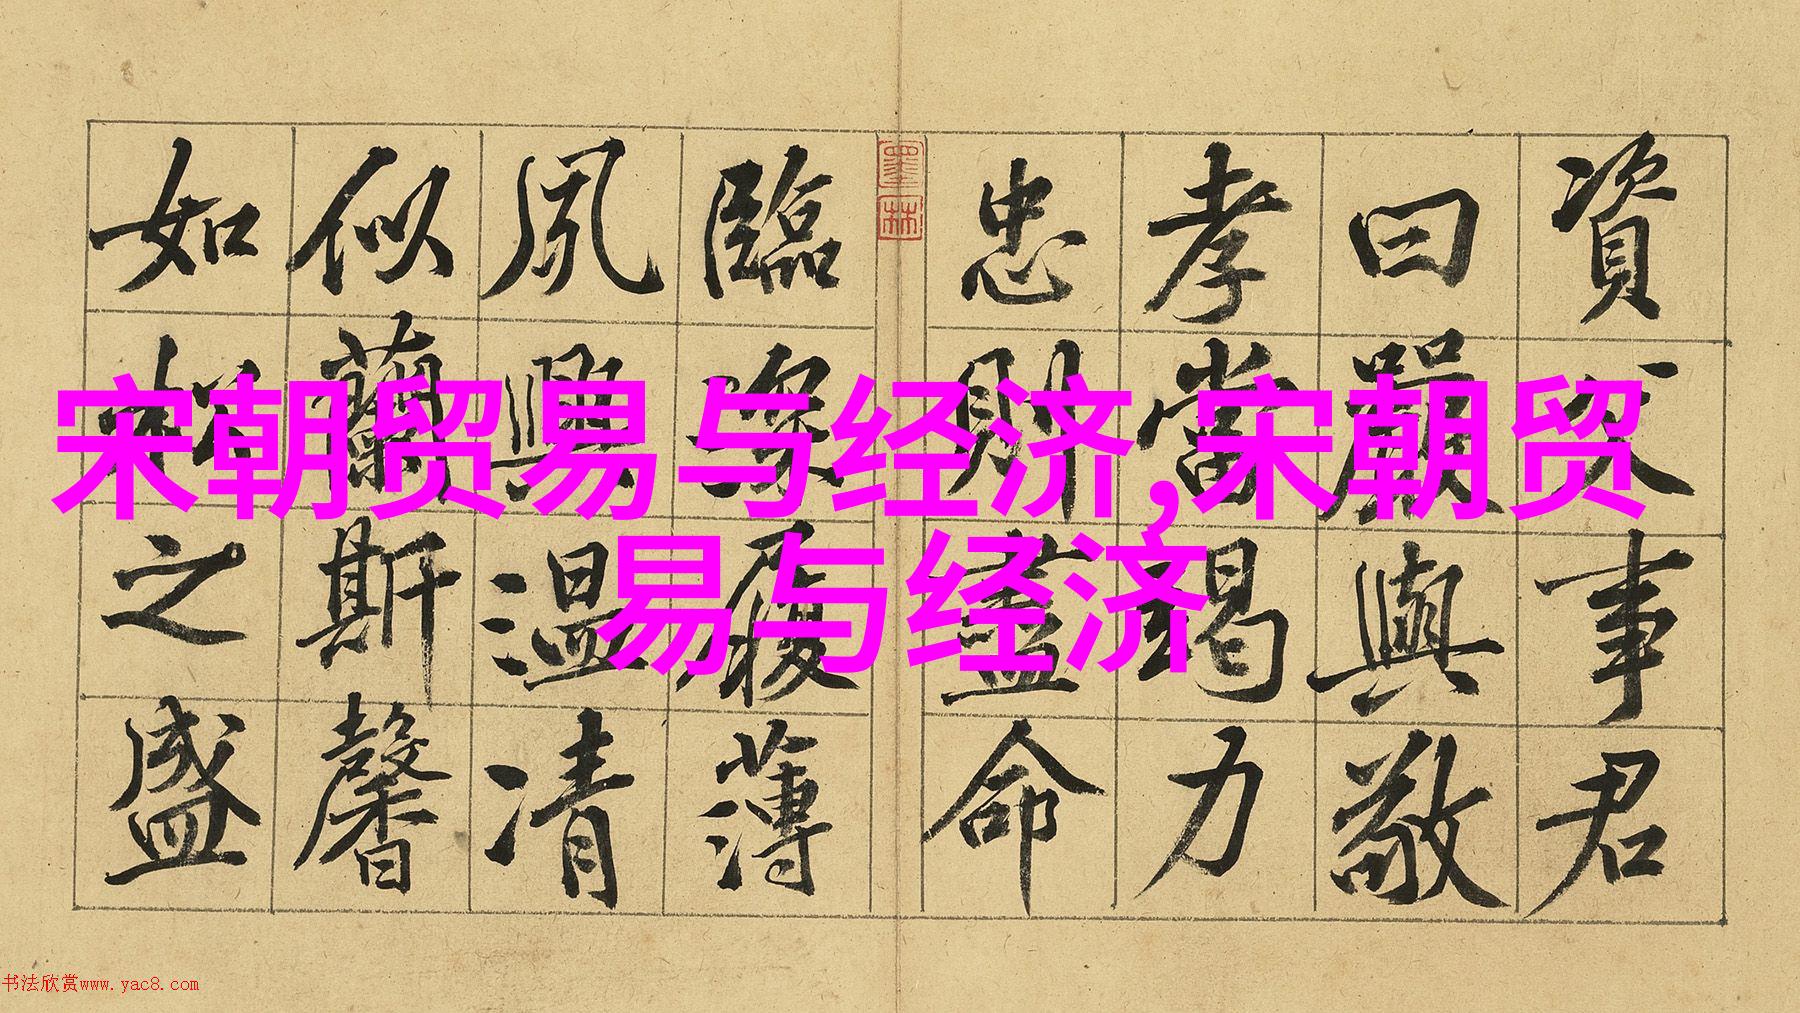 宋朝贸易与经济,宋朝贸
易与经济
資父事君
曰嚴與敬
孝當竭力
忠則盡命
墨林
臨深履薄
夙興溫凊
似蘭斯馨
如松之盛
书法欣赏www.yac8.com